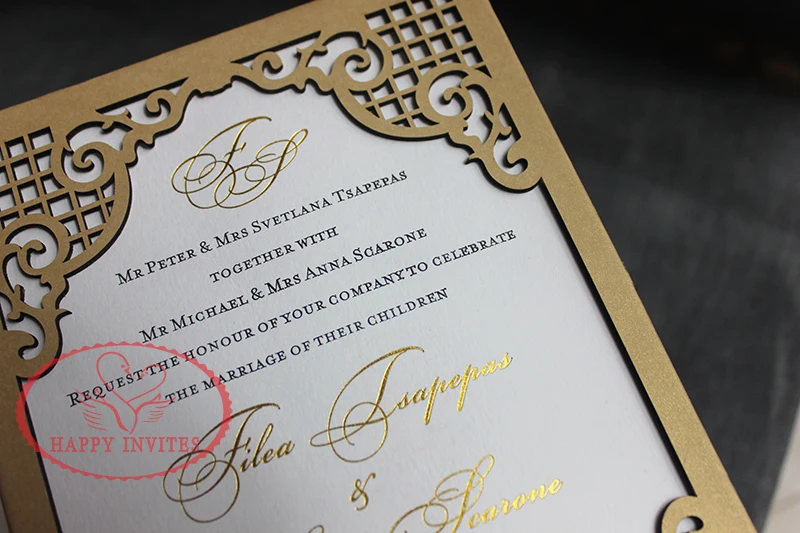 FS
Mr Peter & Mrs Svetlana Tsapepas
together with
Mr Michael & Mrs Anna Scarone
Request the honour of your company to celebrate
the marriage of their children
Filea Tsapepas
&
Scarone
HAPPY INVITES